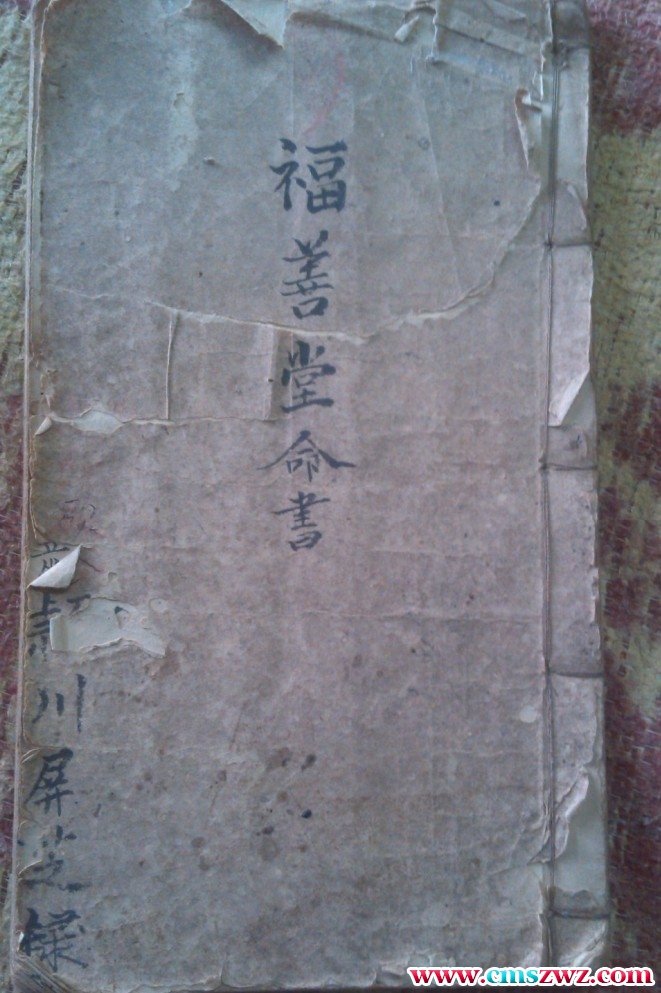 福善堂命書
川屏芝
www.cmszwz.com